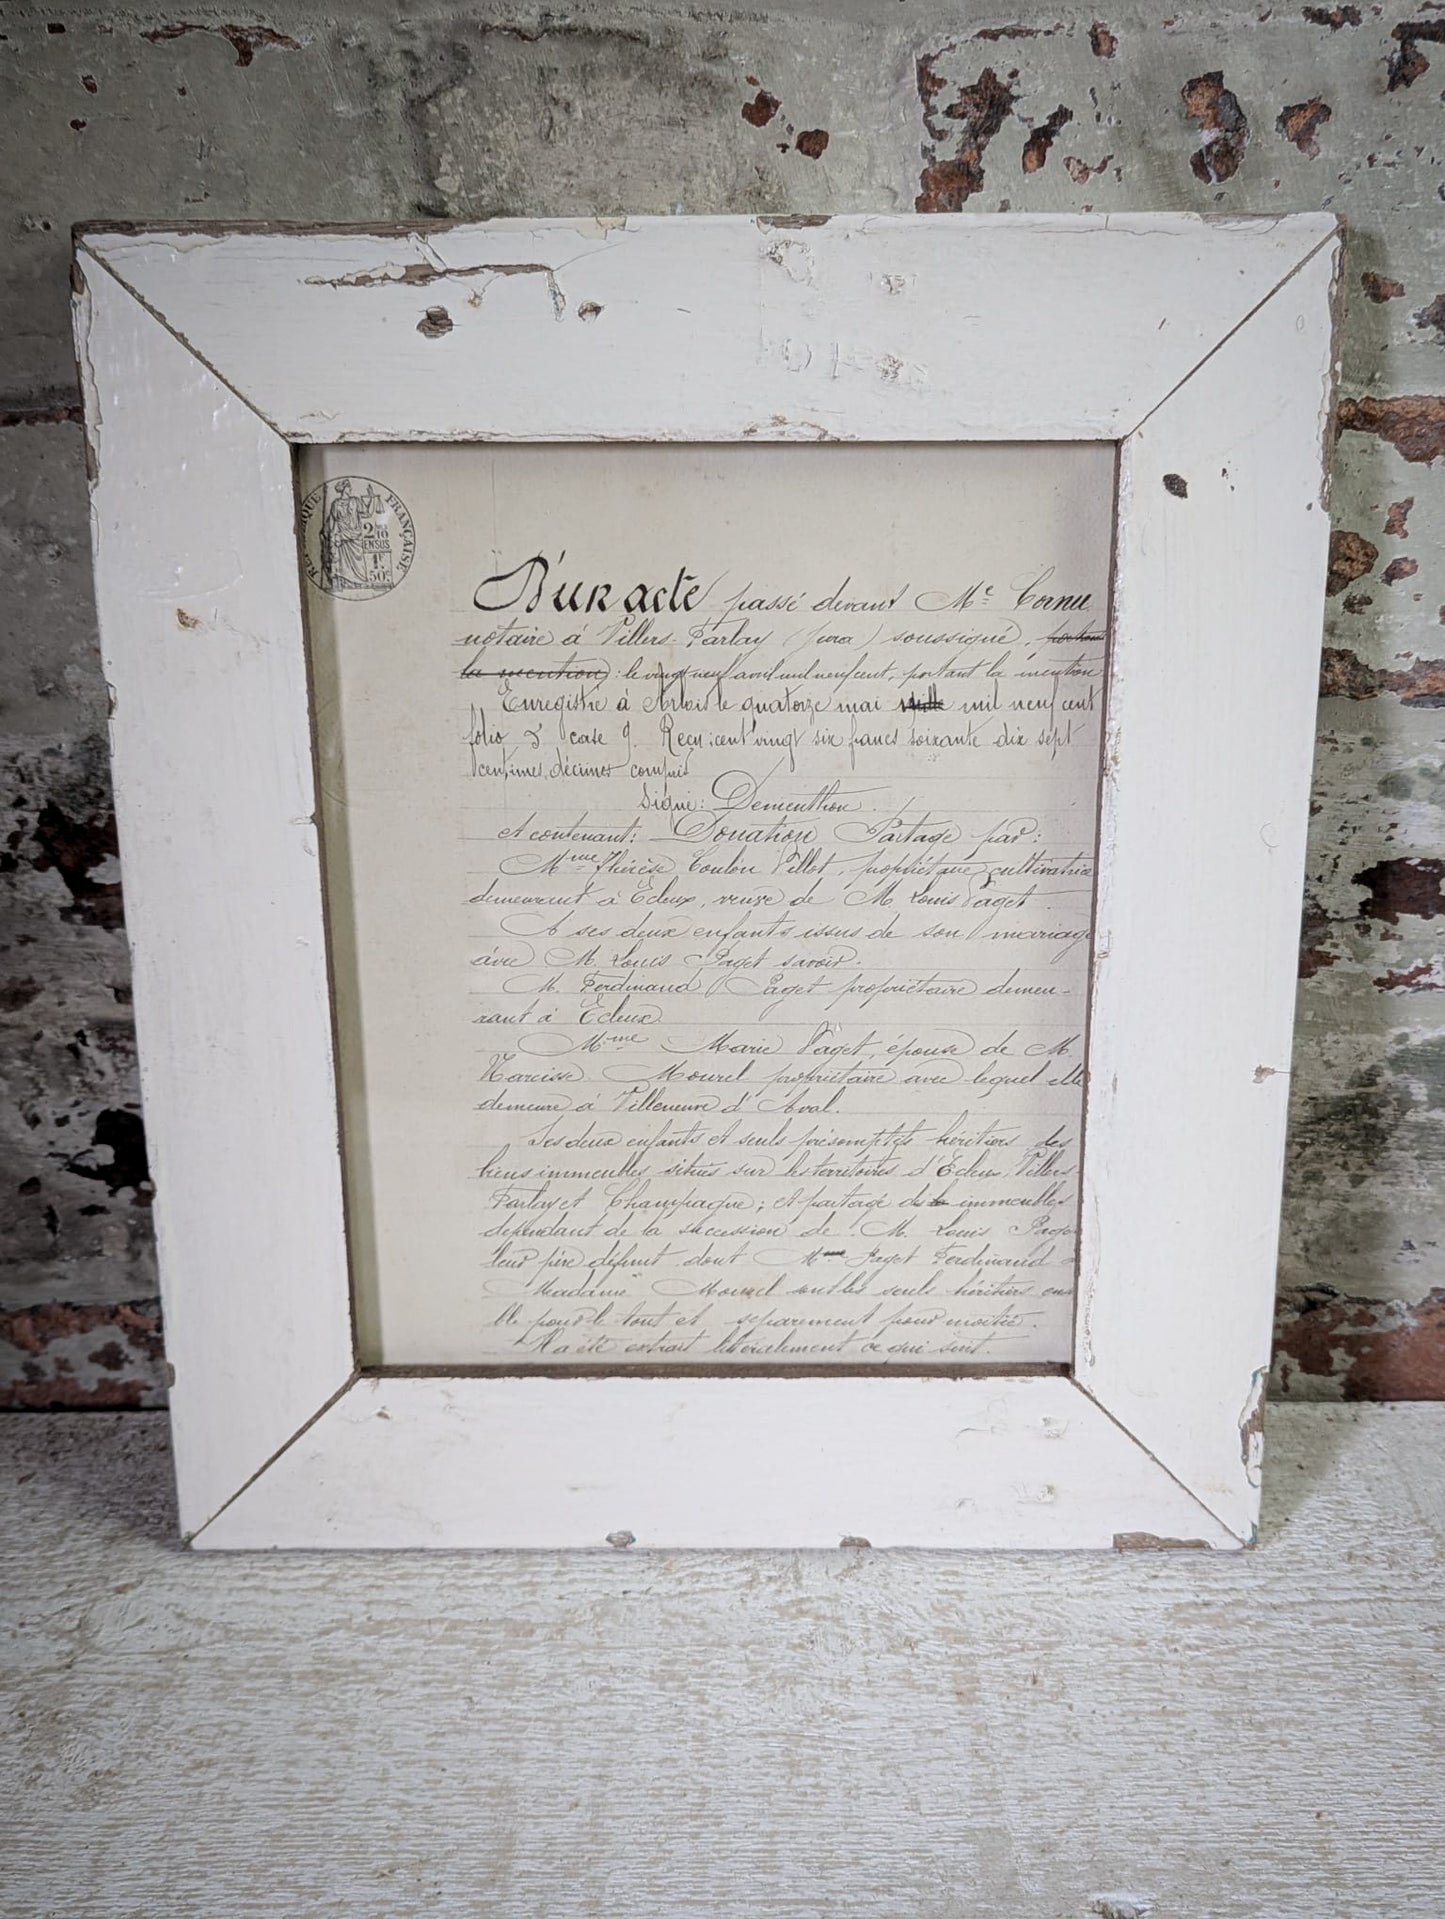 RÉPUBLIQUE FRANÇAISE
2/10
EN SUS
1F
50c
D'un acte passé devant Me Cornu
notaire à Villers-Farlay (Jura) soussigné, portant
la mention : le vingt neuf avril mil neuf cent, portant la mention
Enregistré à Arbois le quatorze mai mil neuf cent
folio 3 case 9. Reçu : cent vingt six francs soixante dix sept
centimes, décimes compris
Signé : Dementhon.
et contenant : Donation Partage par :
Mme Thérèse Coulon Villot, propriétaire cultivatrice
demeurant à Ecleux, veuve de M. Louis Paget.
A ses deux enfants issus de son mariage
avec M. Louis Paget savoir.
M. Ferdinand Paget propriétaire demeu-
rant à Ecleux.
Mme Marie Paget, épouse de M.
Narcisse Mourel propriétaire avec lequel elle
demeure à Villeneuve d'Aval.
Ses deux enfants et seuls présomptifs héritiers des
biens immeubles situés sur les territoires d'Ecleux, Villers-
Farlay et Champagne ; et partage des immeubles
dépendant de la succession de M. Louis Paget
leur père défunt dont M. Paget Ferdinand
Madame Mourel sont les seuls héritiers ensem
ble pour le tout et séparément pour moitié.
Il a été extrait littéralement ce qui suit.